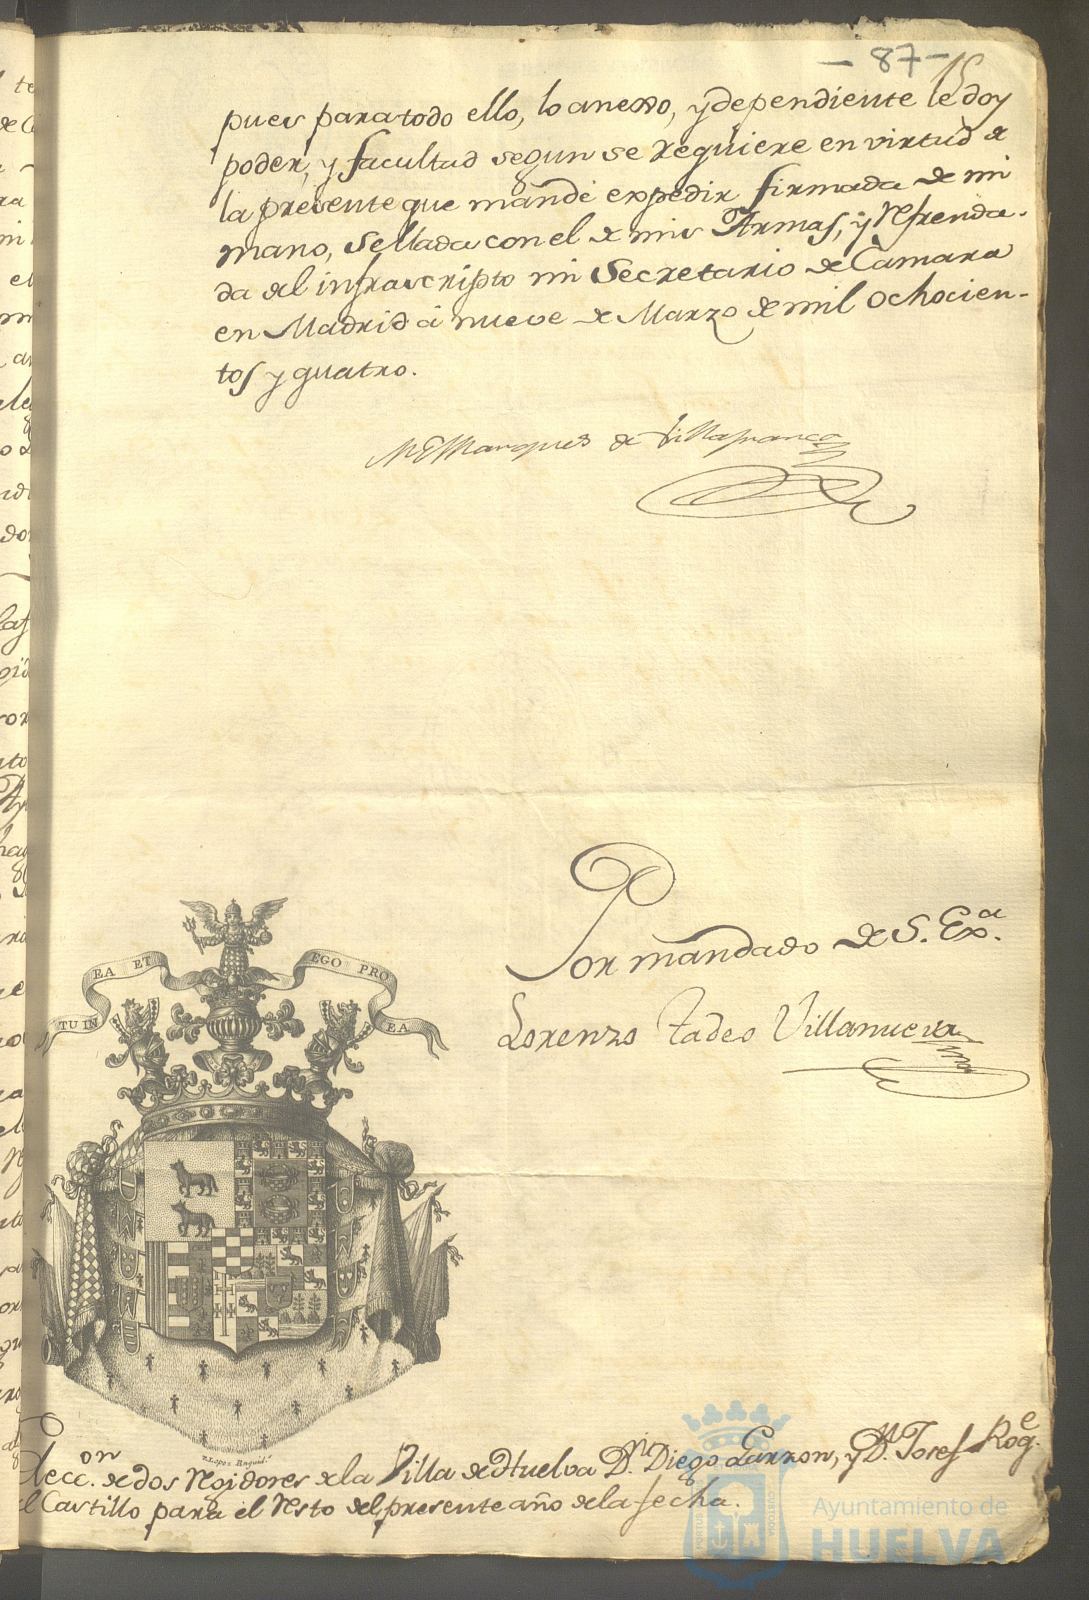 - 87 - 15
pues para todo ello, lo anexo, y dependiente le doy
poder, y facultad segun se requiere en virtud de
la presente que mandé expedir firmada de mi
mano, sellada con el de mis Armas, y Refrenda-
da del infrascripto mi Secretario de Camara
en Madrid á nueve de Marzo de mil ochocien-
tos y quatro.
El Marques de Villafranca
Por mandado de S. Exª.
Lorenzo Tadeo Villanueva
TU IN EA ET EGO PRO EA
Elecc.on de dos Rejidores de la Villa de Huelva D.n Diego Garzon, y D.n Josef Rog.e
el Castillo para el Resto del presente año de la fecha.
Ayuntamiento de
HUELVA